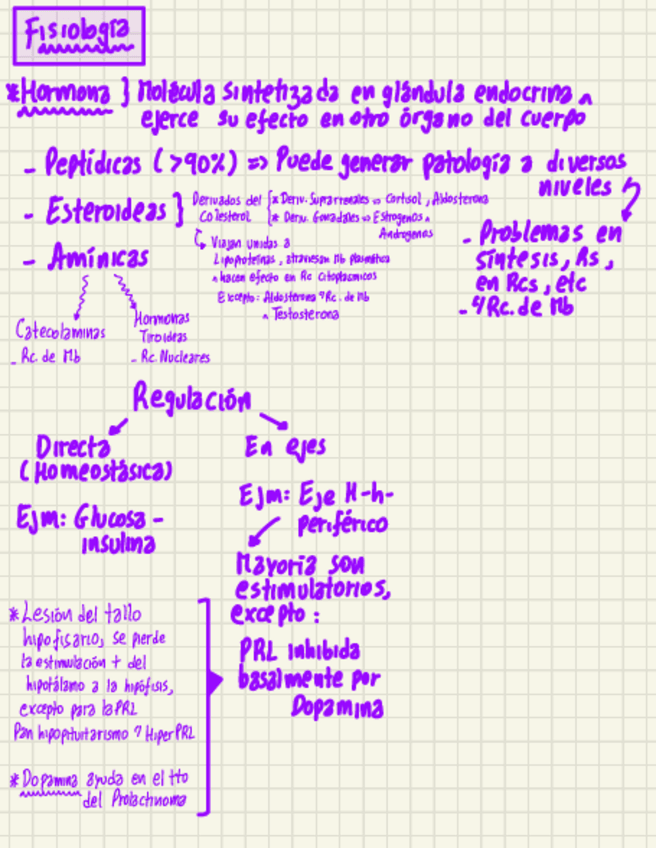 Fisiología
*Hormona } Molécula sintetizada en glándula endocrina ^
ejerce su efecto en otro órgano del cuerpo
- Peptídicas (>90%) => Puede generar patología a diversos
niveles
- Problemas en
síntesis, Rs,
en Rcs, etc
- 4 Rc. de Mb
- Esteroideas }
Derivados del
Colesterol
{* Deriv. Suprarrenales => Cortisol, Aldosterona
* Deriv. Gonadales => Estrógenos ^
Andrógenos
Viajan unidas a
Lipoproteínas, atraviesan Mb plasmática
^ hacen efecto en Rc Citoplasmicos
Excepto: Aldosterona 4 Rc. de Mb
^ Testosterona
- Amínicas
Catecolaminas
- Rc. de Mb
Hormonas
Tiroideas
- Rc. Nucleares
Regulación
Directa
(Homeostásica)
Ejm: Glucosa -
insulina
En ejes
Ejm: Eje H-h-
periférico
Mayoria son
estimulatorios,
excepto:
PRL inhibida
basalmente por
Dopamina
*Lesión del tallo
hipofisario, se pierde
la estimulación + del
hipotálamo a la hipófisis,
excepto para la PRL
Pan hipopituitarismo 4 HiperPRL
*Dopamina ayuda en el tto
del Prolactinoma